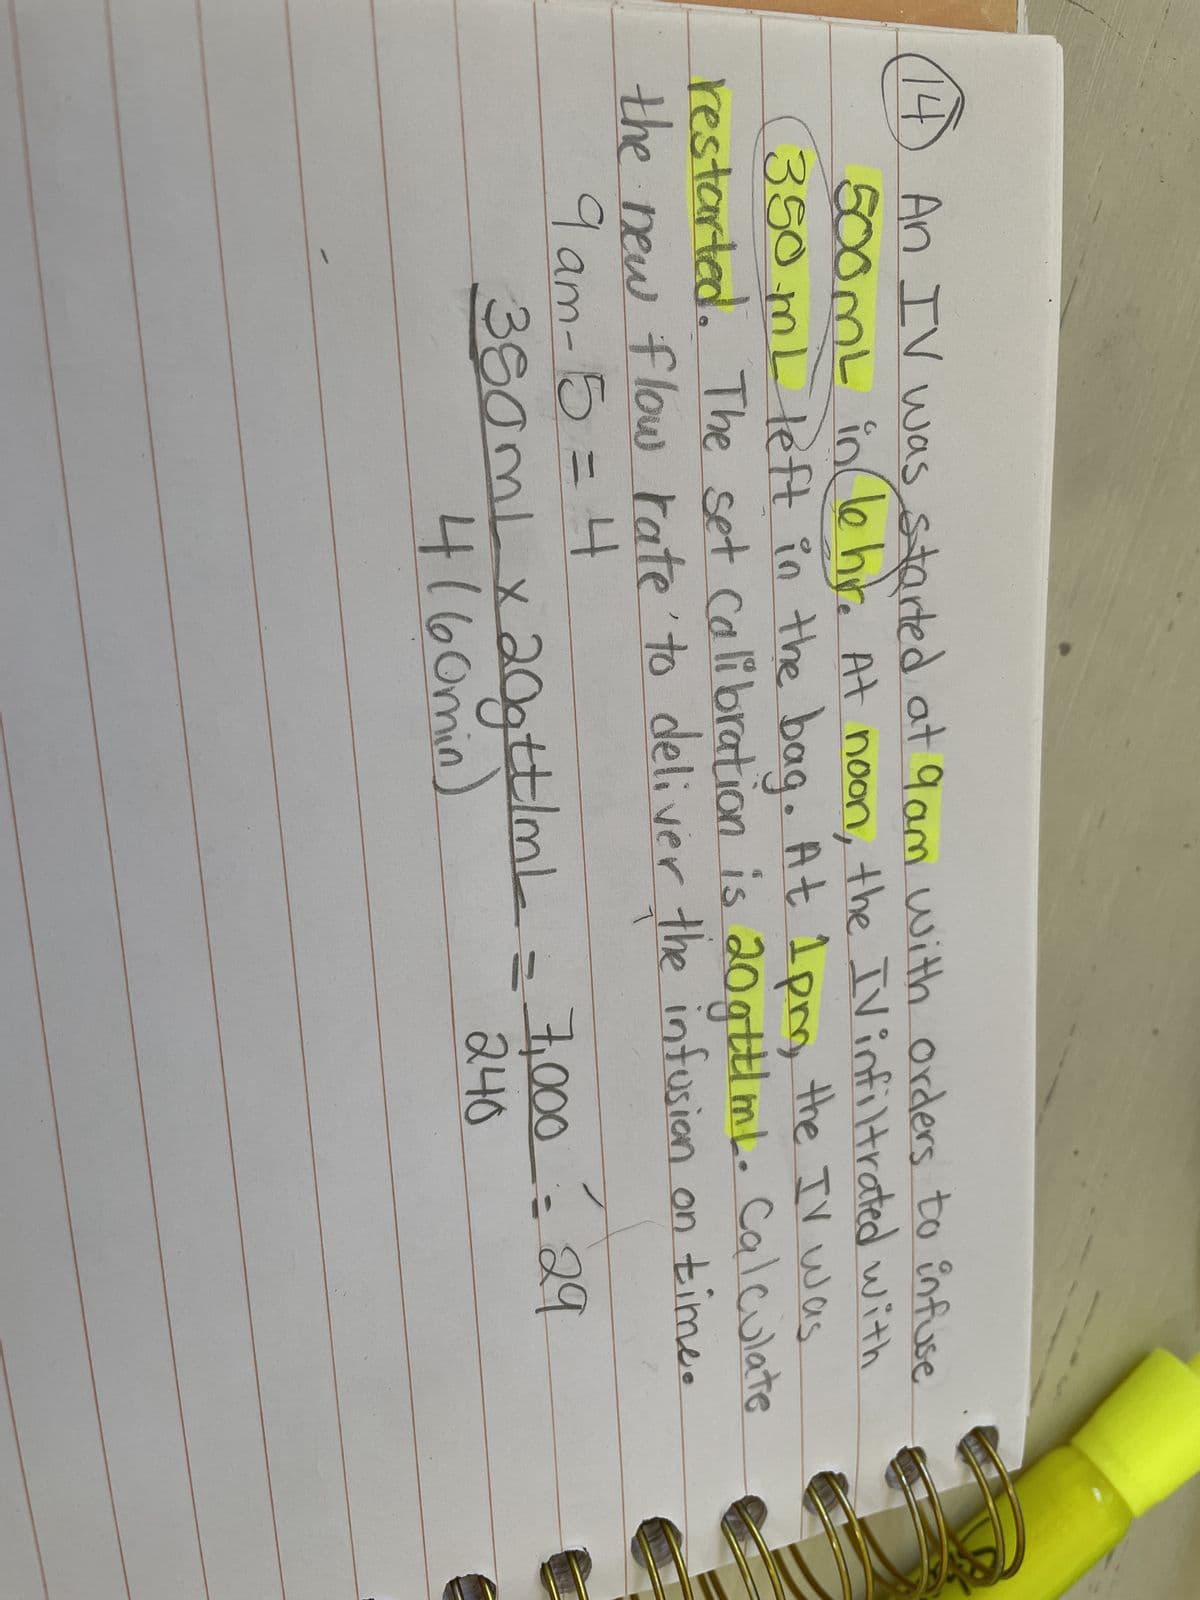 14 An IV was started at 9am with orders to infuse
500mL in 6 hr. At noon, the IV infiltrated with
350 mL left in the bag. At 1pm, the IV was
restarted. The set calibration is 20gtt/mL. Calculate
the new flow rate to deliver the infusion on time.
9am-15 = 4
350mL x 20gtt/mL = 7,000 = 29
4(60min) 240